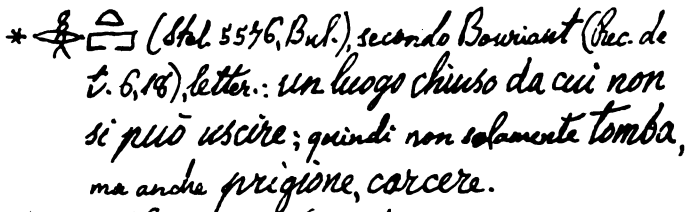 * (Stel. 5576, Bul.), secondo Bouriant (Rec. de
t. 6,18), letter.: un luogo chiuso da cui non
si può uscire; quindi non solamente tomba,
ma anche prigione, carcere.